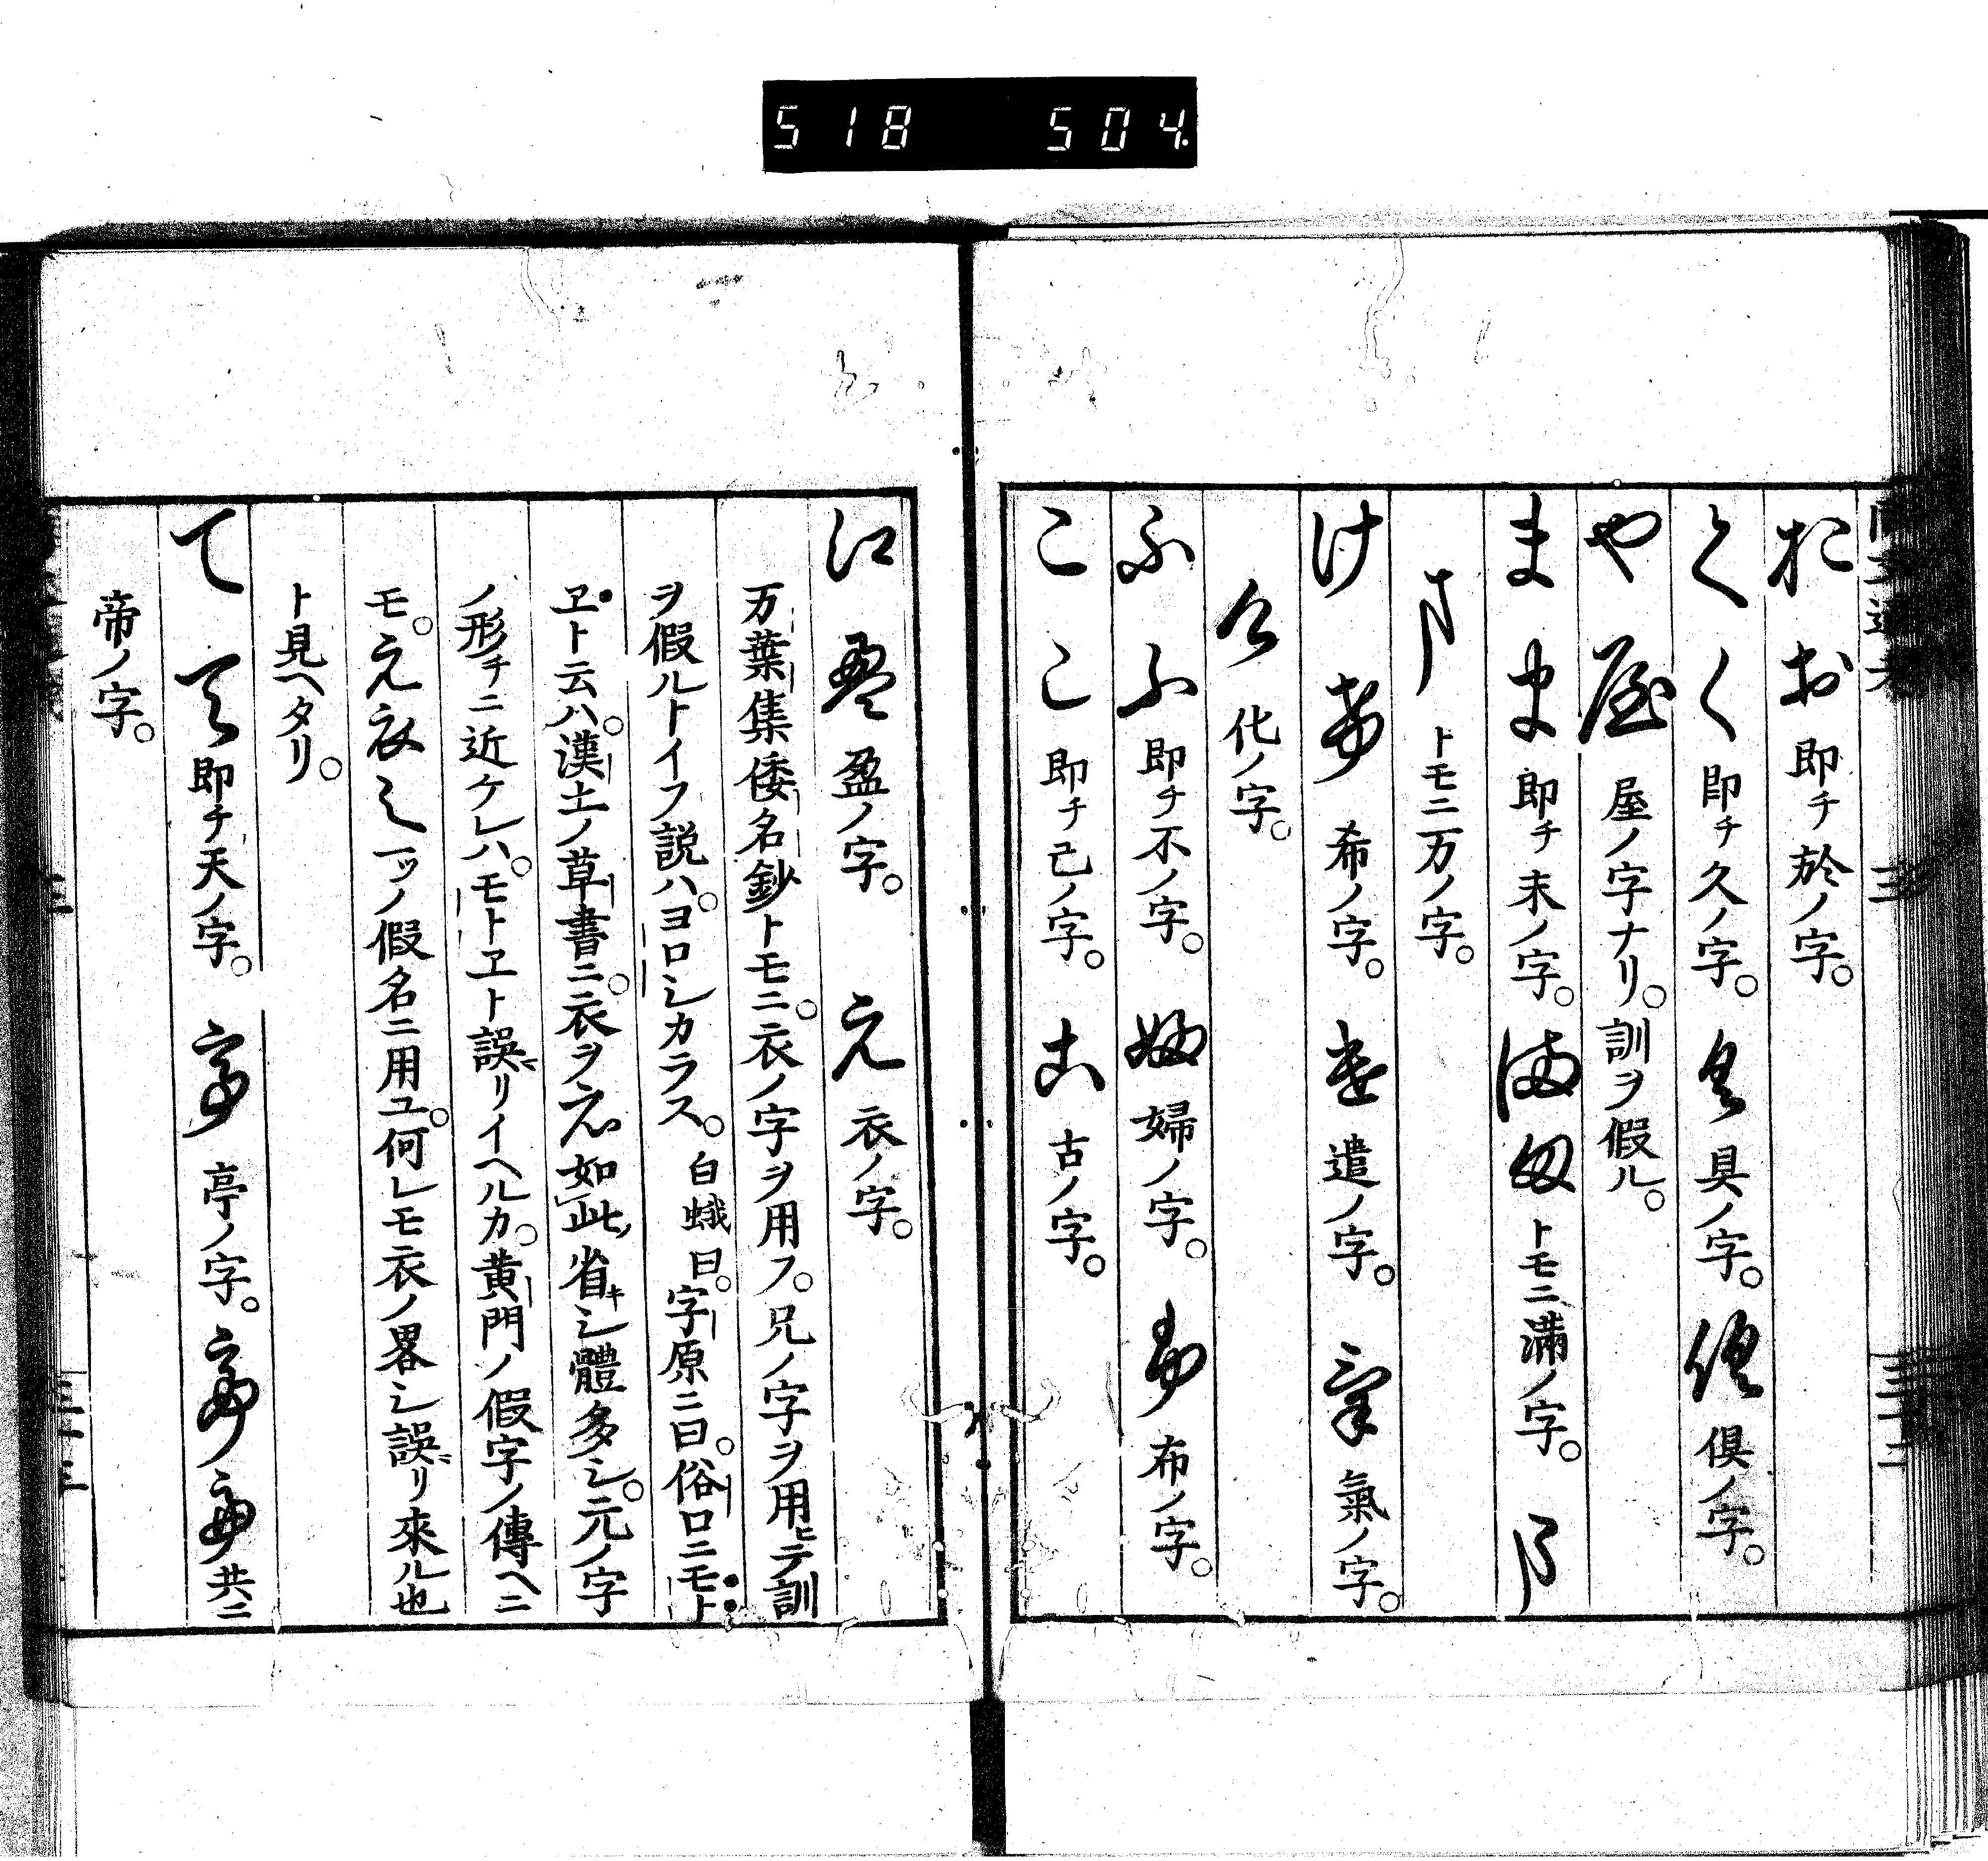 518 504
おお即チ於ノ字。
くく即チ久ノ字。具具ノ字。倶倶ノ字。
や屋屋ノ字ナリ。訓ヲ假ル。
まま即チ末ノ字。満満トモニ滿ノ字。万
万トモニ万ノ字。
け希希ノ字。遣遣ノ字。氣氣ノ字。
化化ノ字。
ふふ即チ不ノ字。婦婦ノ字。布布ノ字。
ここ即チ己ノ字。古古ノ字。
江盈盈ノ字。え衣ノ字。
万葉集倭名鈔トモニ。衣ノ字ヲ用フ。兄ノ字ヲ用ヒテ訓
ヲ假ルトイフ説ハ。ヨロシカラス。白蛾曰。字原ニ曰。俗ロニモト
ヱト云ハ。漢土ノ草書ニ。衣ヲえ如此省キシ體多シ。元ノ字
ノ形チニ近ケレハ。モトヱト誤リイヘルカ。黄門ノ假字ノ傳ヘニ
モ。え衣え一ツノ假名ニ用ユ。何レモ衣ノ畧シ誤リ來ル也
ト見ヘタリ。
てて即チ天ノ字。亭亭ノ字。帝帝共ニ
帝ノ字。